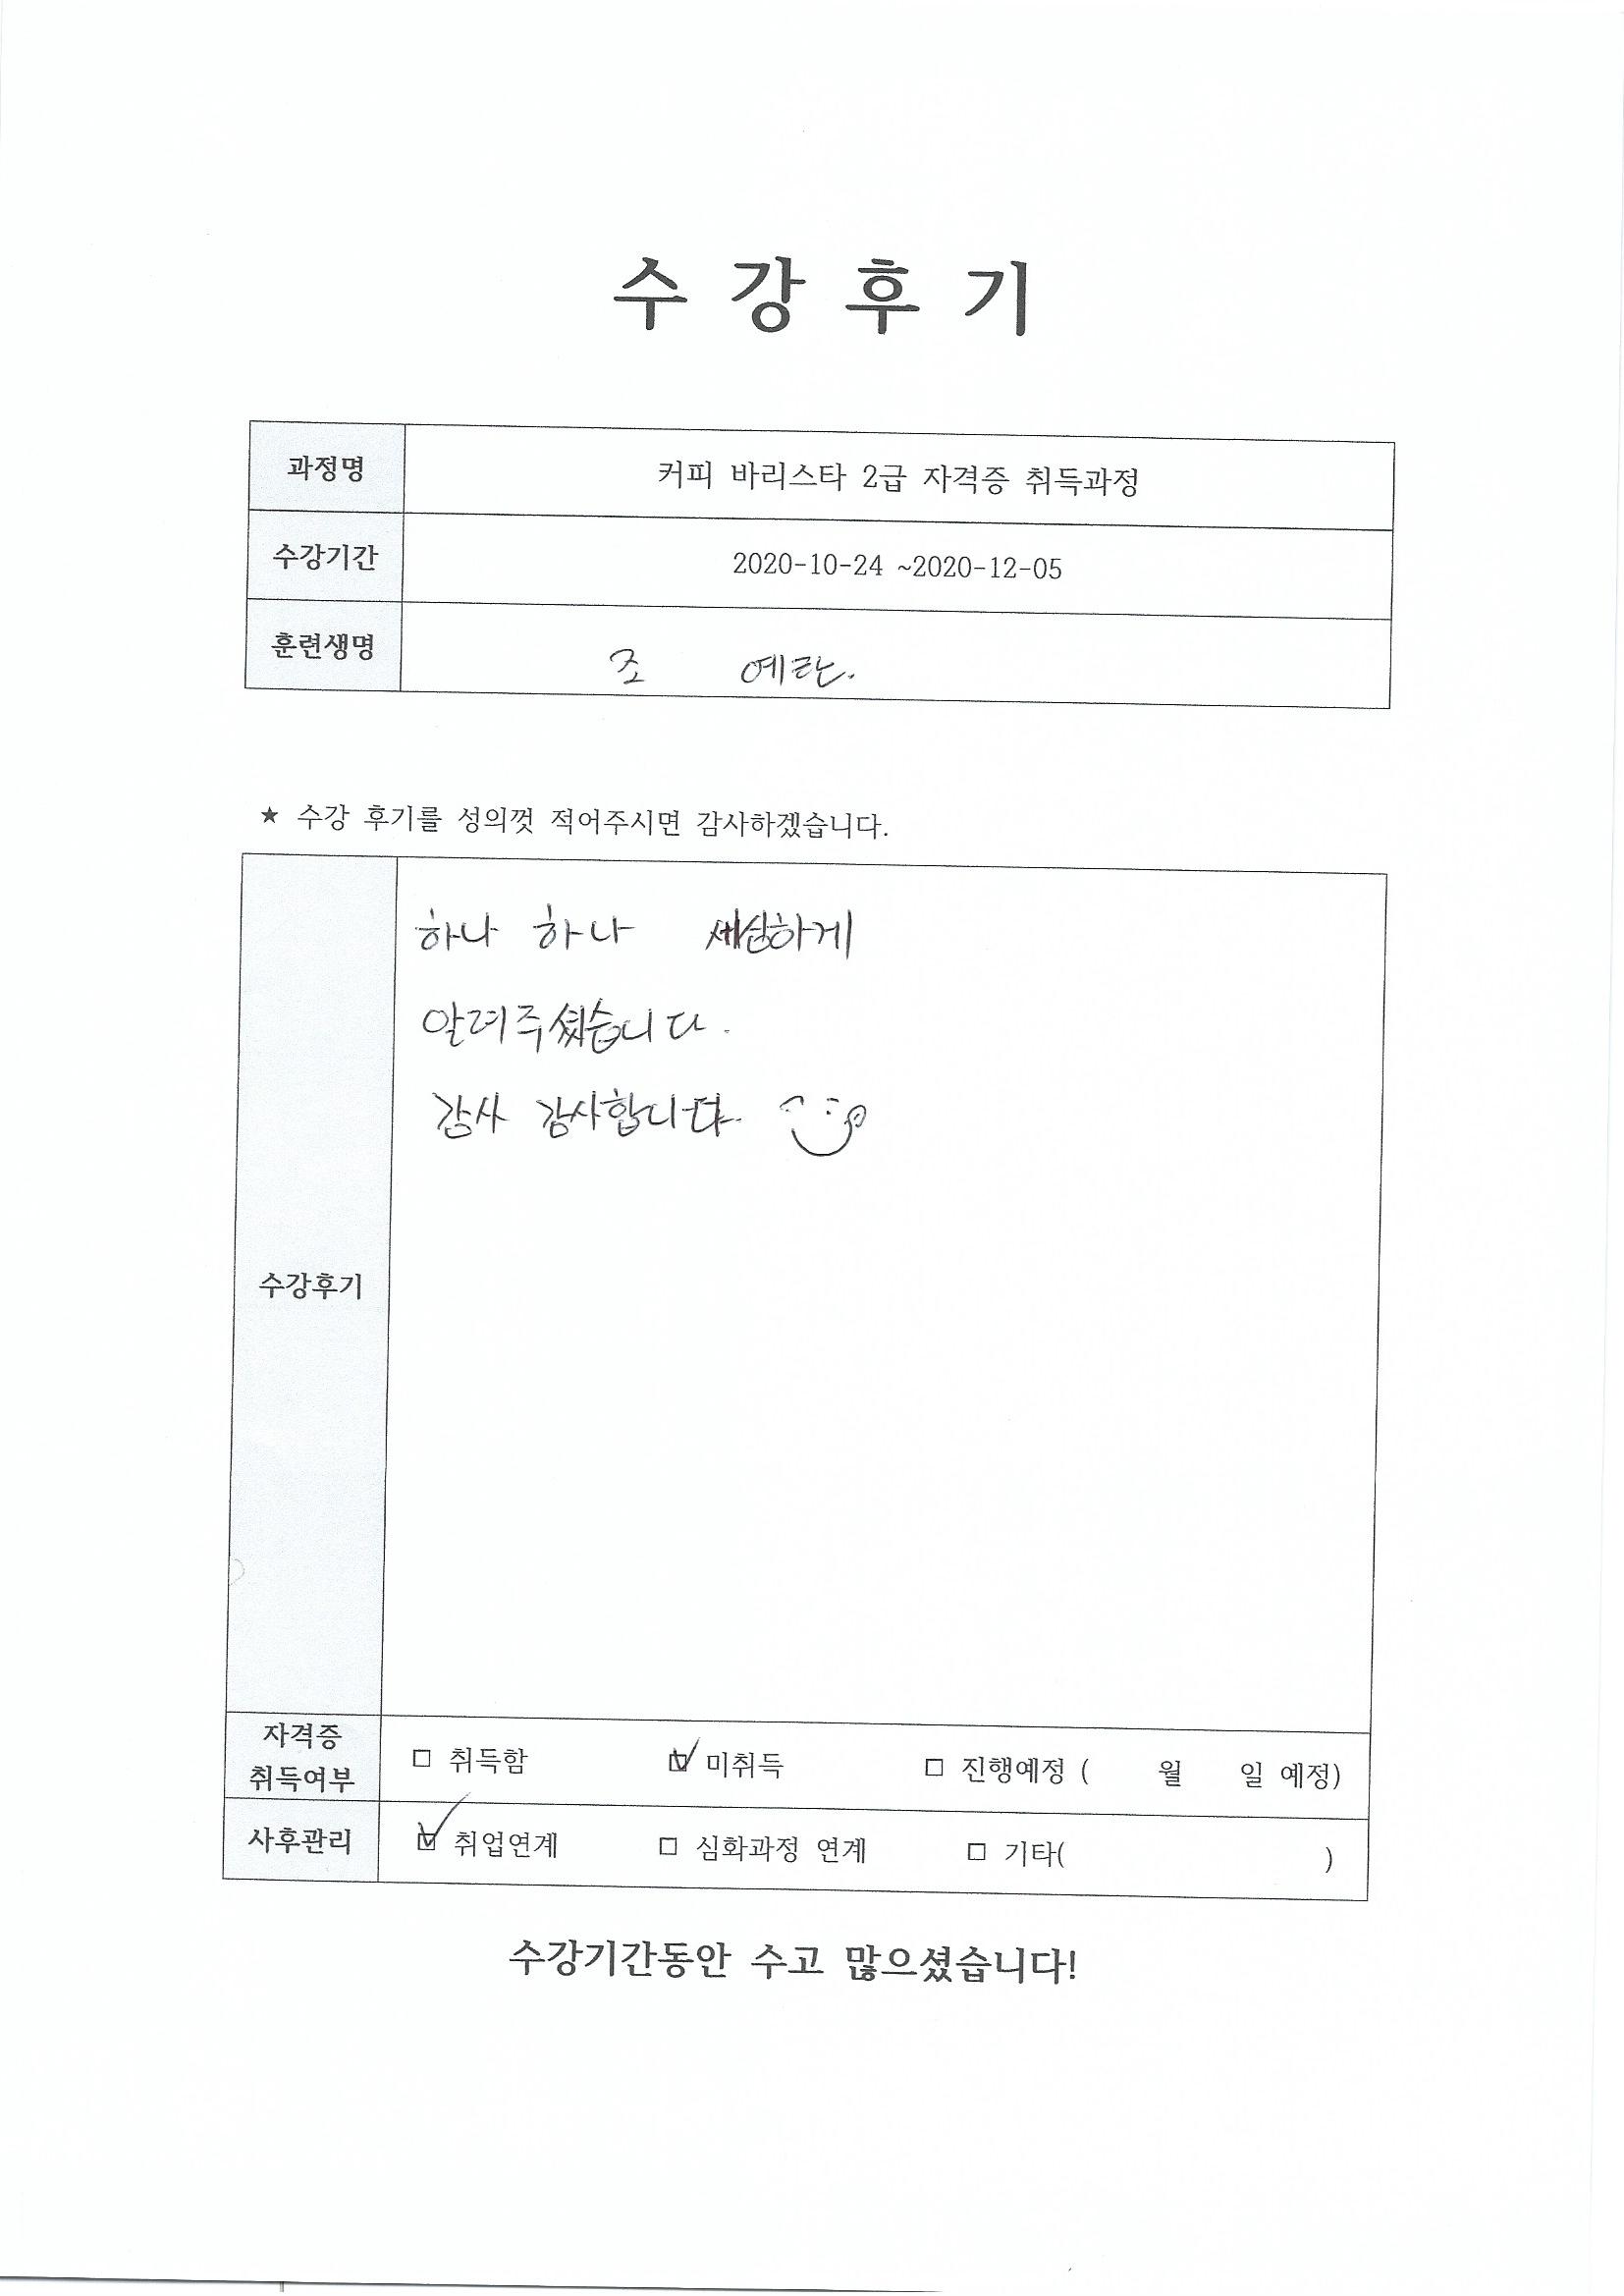 수 강 후 기
과정명 커피 바리스타 2급 자격증 취득과정
수강기간 2020-10-24 ~2020-12-05
훈련생명 조 예란.
★ 수강 후기를 성의껏 적어주시면 감사하겠습니다.
수강후기
하나 하나 세심하게
알려주셨습니다.
감사 감사합니다.
자격증 취득여부 □ 취득함 ☑ 미취득 □ 진행예정 ( 월 일 예정)
사후관리 ☑ 취업연계 □ 심화과정 연계 □ 기타( )
수강기간동안 수고 많으셨습니다!